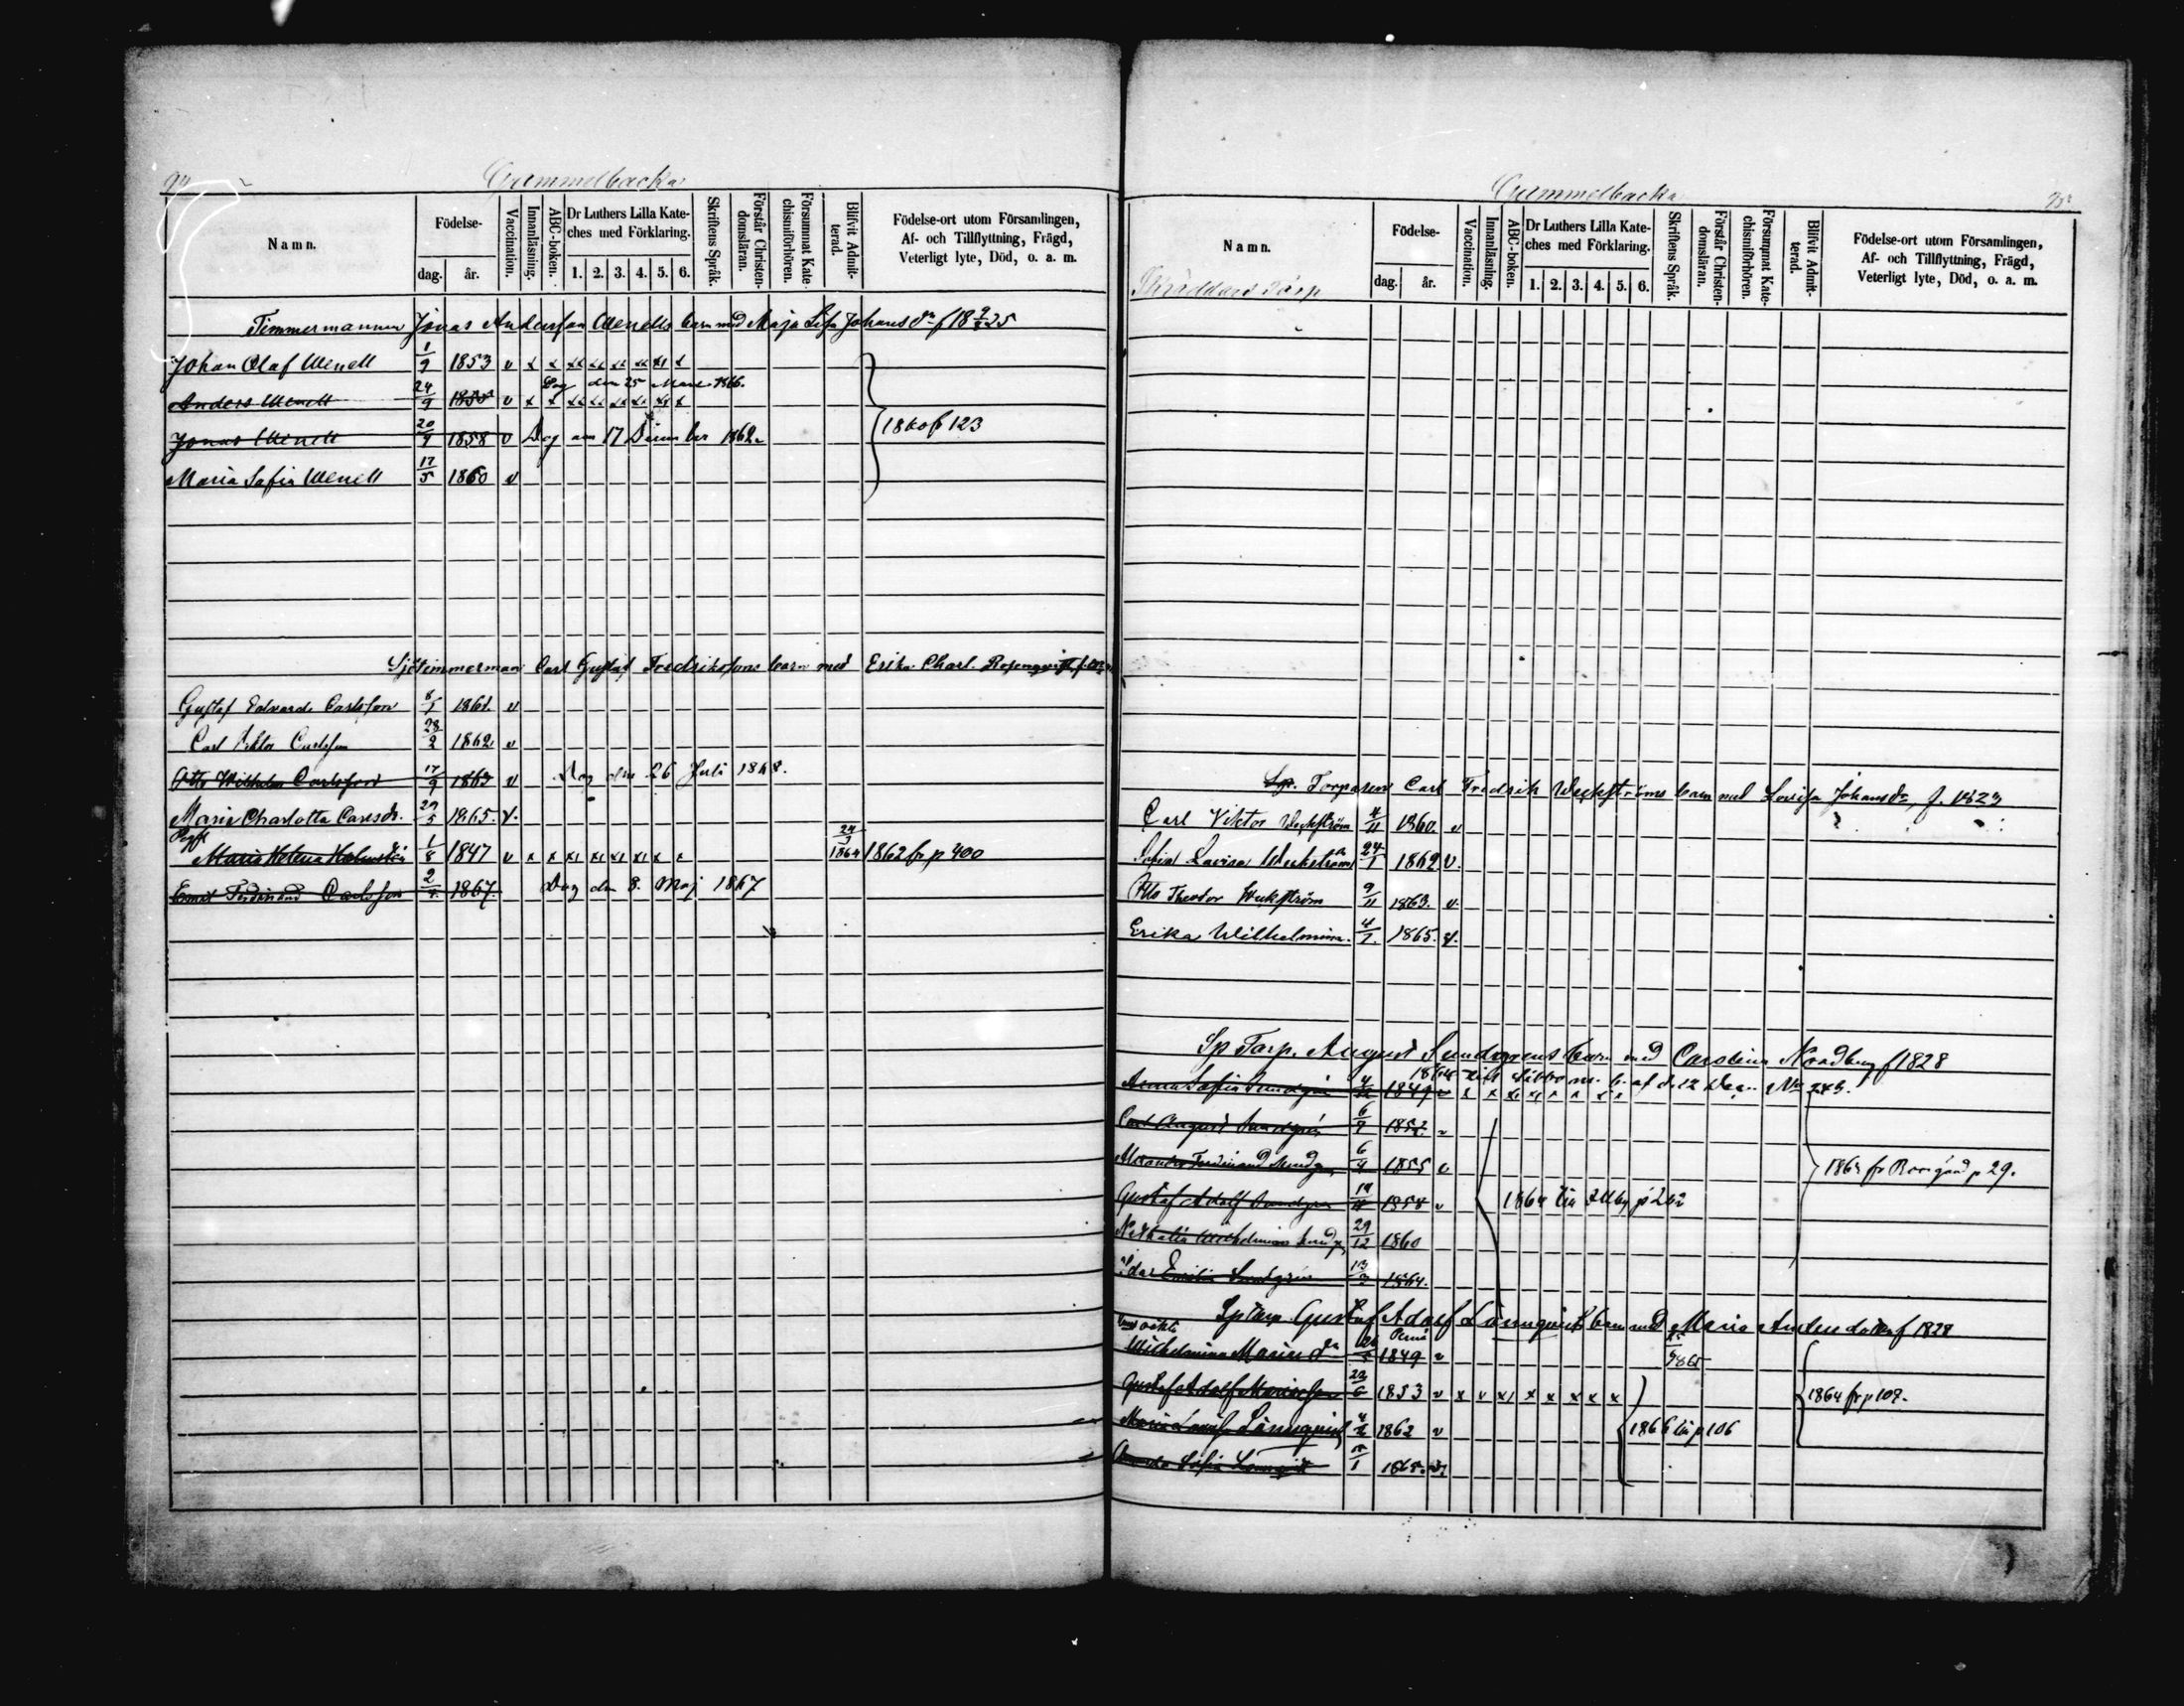 94
Gammelbacka
Namn.
Födelse-
dag.
år.
Vaccination.
Innanläsning.
ABC-boken.
Dr Luthers Lilla Kate-
ches med Förklaring.
1. 2. 3. 4. 5. 6.
Skriftens Språk.
Förstår Christen-
domsläran.
Försummat Kate-
chismiförhören.
Blifvit Admit-
terad.
Födelse-ort utom Församlingen,
Af- och Tillflyttning, Frägd,
Veterligt lyte, Död, o. a. m.
Timmermannen Jonas Andersson Wenells barn med Maja Lisa Johansdr f 18 25
Johan Olaf Wenell 1/9 1853 v x x
Dog den 25 Mars 1866.
Anders Wenell 24/9 1855 v x x
Jonas Wenell 20/9 1858 v Dog den 17 December 1862
1860 fr 123
Maria Sofia Wenell 17/5 1860 v
Sjötimmerman Carl Gustaf Fredrikssons barn med Erika Charl. Rosenqvist f.
Gustaf Edvard Carlsson 8/1 1861. v
Carl Viktor Carlsson 28/2 1862 v
Otto Wilhelm Carlsson 17/9 1863 v Dog den 26 Juli 1868.
Maria Charlotta Carlsdr. 29/5 1865. v.
Maria Helena 1/8 1847 v x x 24/ 1864 1862 fr p 400
Ernst Ferdinand Carlsson 2/ 1867. Dog den 8. Maj 1867
Gammelbacka
95
Namn.
Skräddars torp
Födelse-
dag.
år.
Vaccination.
Innanläsning.
ABC-boken.
Dr Luthers Lilla Kate-
ches med Förklaring.
1. 2. 3. 4. 5. 6.
Skriftens Språk.
Förstår Christen-
domsläran.
Försumpat Kate-
chismiförhören.
Blifvit Admit-
terad.
Födelse-ort utom Församlingen,
Af- och Tillflyttning, Frägd,
Veterligt lyte, Död, o. a. m.
Sp. Torparen Carl Fredrik Weckströms barn med Lovisa Johansdr, f. 1823
Carl Viktor Weckström 4/11 1860. v
Sofia Lovisa Weckström 24/1 1862 v.
Otto Theodor Weckström 9/11 1863. v.
Erika Wilhelmina. 4/7. 1865. v.
Sp Torp. August Sundgrens barn med Carolina Nordberg f 1828
1864 till Sibbo m. b. af d. 12 Dec.
Anna Sofia Sundgren 1849 v x x
Carl August Sundgren 6/7 1852. v
Alexander Ferdinand Sundgren 6/4 1855 v
1864 fr Borgård p 29.
Gustaf Adolf Sundgren 1858 v 1864 till p 202
Nathalia Wilhelmina Sundgr 29/12 1860
Ida Emilia Sundgren 1864.
Sp Torp. Gustaf Adolf Lönnqvist barn med Maria Andersdotter f 1828
Wilhelmina Mariasdr Perno 1849 v 1865
Gustaf Adolf Mariasson 23/6 1853 v x v x x x x x x
1864 fr p 107.
Maria Lovisa Lönnqvist 1862 v 1866 till p 106
Amanda Sofia Lönnqvist 1865. v